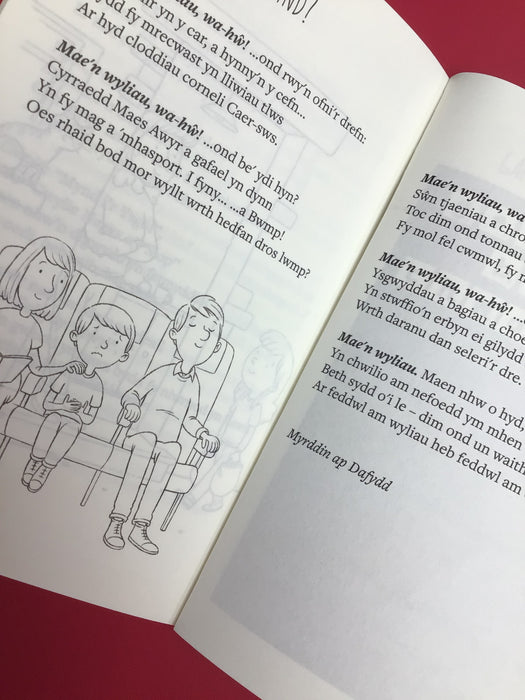 ND!
wa-hŵ! ...ond rwy'n ofni'r drefn:
yn y car, a hynny'n y cefn...
fy mrecwast yn lliwiau tlws
Ar hyd cloddiau corneli Caer-sws.
Mae'n wyliau, wa-hŵ! ...ond be' ydi hyn?
Cyrraedd Maes Awyr a gafael yn dynn
Yn fy mag a 'mhasport. I fyny... ...a Bwmp!
Oes rhaid bod mor wyllt wrth hedfan dros lwmp?
Mae'n wyliau, wa-
Sŵn tjaeniau a chro
Toc dim ond tonnau
Fy mol fel cwmwl, fy
Mae'n wyliau, wa-hŵ!
Ysgwyddau a bagiau a choe
Yn stwffio'n erbyn ei gilydd
Wrth daranu dan seleri'r dre.
Mae'n wyliau. Maen nhw o hyd,
Yn chwilio am nefoedd ym mhen
Beth sydd o'i le – dim ond un waith
Ar feddwl am wyliau heb feddwl am
Myrddin ap Dafydd